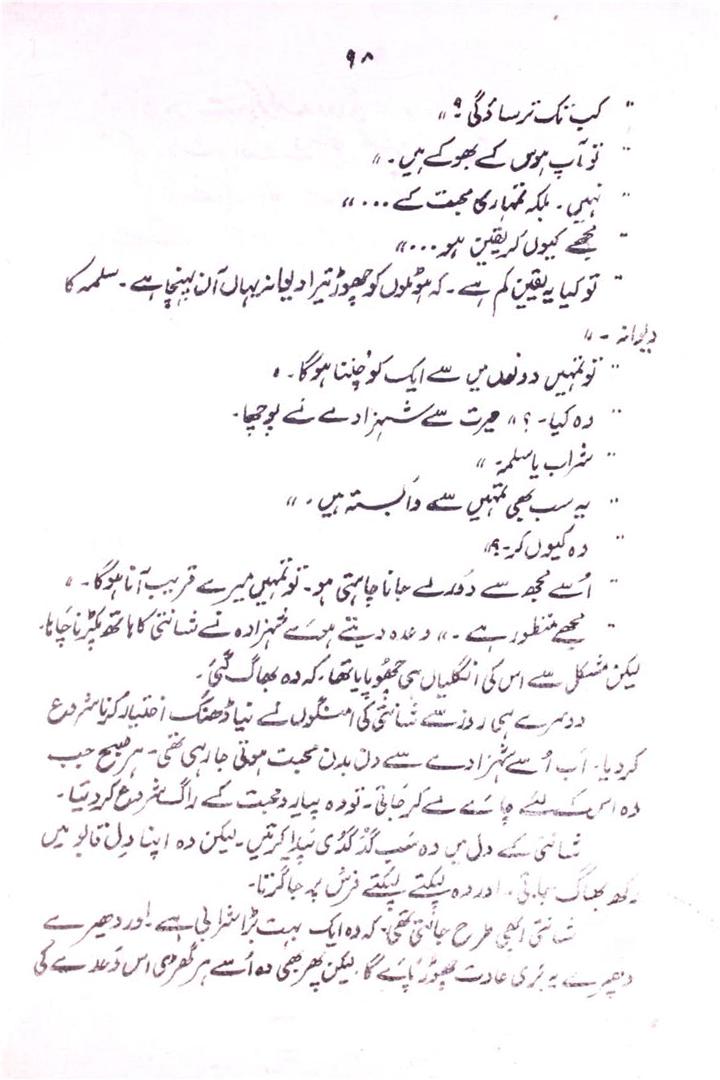 ۹۸
" کب تک ترساؤگی ؟ "
" تو آپ ہوس کے بھوکے ہیں۔ "
" نہیں۔ بلکہ تمہاری محبت کے ... "
" مجھے کیوں کر یقین ہو ... "
" تو کیا یہ یقین کم ہے۔ کہ ہوٹلوں کو چھوڑ تیرا دیوانہ یہاں آن پہنچا ہے۔ سلمہ کا
دیوانہ ۔ "
" تو تمہیں دونوں میں سے ایک کو چُننا ہوگا۔ "
" وہ کیا۔ ؟ " حیرت سے شہزادے نے پوچھا۔
" شراب یا سلمہ "
" یہ سب بھی تمہیں سے وابستہ ہیں۔ "
" وہ کیوں کر۔ ؟ "
" اُسے مجھ سے دُور لے جانا چاہتی ہو۔ تو تمہیں میرے قریب آنا ہوگا۔ "
" مجھے منظور ہے ۔ " وعدہ دیتے ہوئے شہزادہ نے شانتی کا ہاتھ پکڑنا چاہا۔
لیکن مشکل سے اس کی انگلیاں ہی چھو پایا تھا۔ کہ وہ بھاگ گئی۔
دوسرے ہی روز سے شانتی کی امنگوں نے نیا ڈھنگ اختیار کرنا شروع
کر دیا۔ اب اُسے شہزادے سے دن بدن محبت ہوتی جا رہی تھی۔ ہر صبح جب
وہ اس کے لئے چائے لے کر جاتی۔ تو وہ پیار و محبت کے راگ شروع کر دیتا۔
شانتی کے دل میں وہ سب گُدگُدی پیدا کرتیں۔ لیکن وہ اپنا دِل قابو میں
رکھ بھاگ جاتی۔ اور وہ لپکتے لپکتے فرش پہ جا گرتا۔
شانتی اچھی طرح جانتی تھی۔ کہ وہ ایک بہت بڑا شرابی ہے۔ اور دھیرے
دھیرے یہ بُری عادت چھوڑ پائے گا۔ لیکن پھر بھی وہ اُسے ہر گھڑی اس وعدے کی